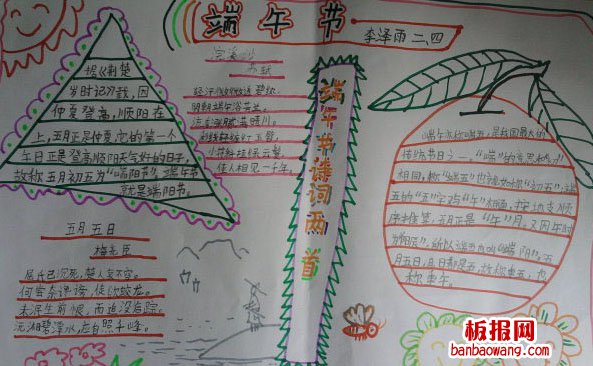 端午节
李泽雨 二、四
据《荆楚
岁时记》载，因
仲夏登高，顺阳在
上，五月正是仲夏，它的第一个
午日正是登高顺阳天气好的日子，
故称五月初五为“端阳节”。端午节
就是端阳节。
浣溪沙
苏轼
轻汗微微透碧纨，
明朝端午浴芳兰。
流香涨腻满晴川。
彩线轻缠红玉臂，
小符斜挂绿云鬟。
佳人相见一千年。
端午节诗词两首
五月五日
梅尧臣
屈氏已沉死，楚人哀不容。
何尝奈谗谤，徒欲却蛟龙。
未泯生前恨，而追没后踪。
沅湘碧潭水，应自照千峰。
端午亦称端五，
传统节日之一，“端”的意思和“初”
相同，称“端五”也就如称“初五”；端
五的“五”字又与“午”相通，按地支顺
序推算，五月正是“午”月。又因午时
为“阳辰”，所以端五也叫“端阳”。五
月五日，月日都是五，故称重五，也
称重午。
板报网
banbaowang.com